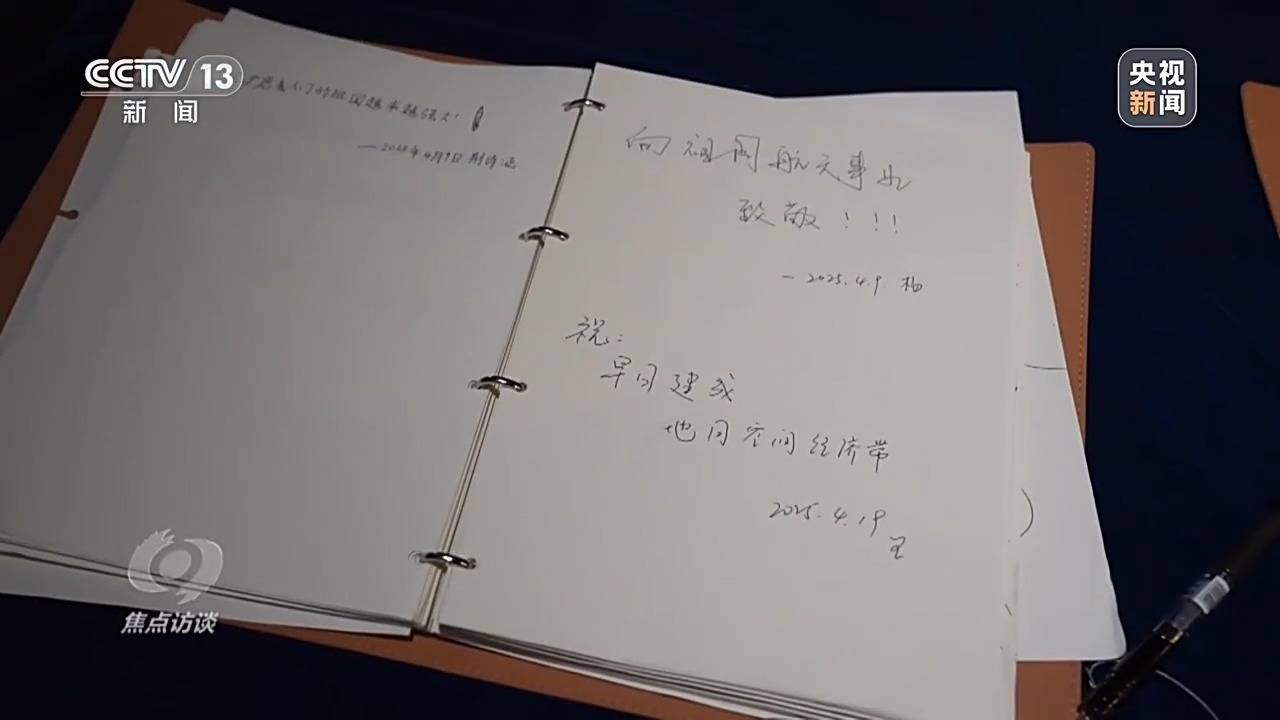 CCTV 13
新闻
央视
新闻
的祖国越来越强大！
—2025年4月9日
向祖国航天事业
致敬！！！
—2025.4.9 柏
祝：
早日建成
地月空间经济带
2025.4.19
王
焦点访谈